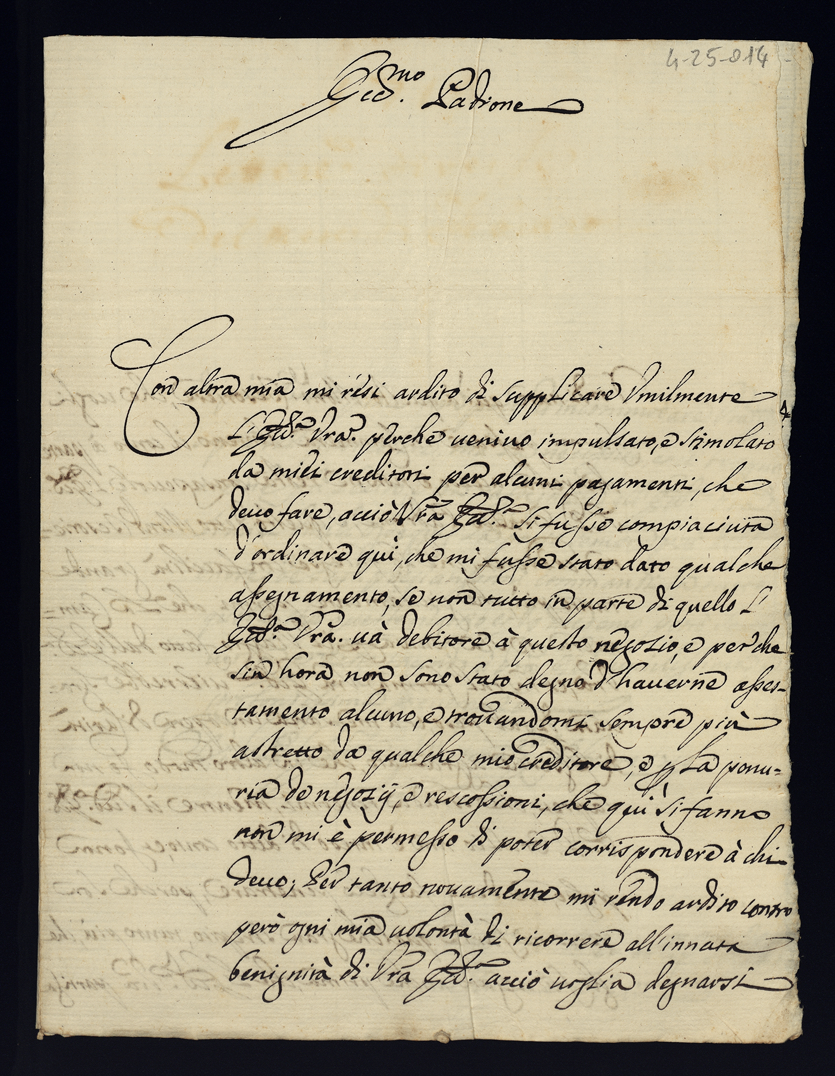 4-25-014
Ecc.mo Padrone
Con altra mia mi resi ardito di supplicare Vmilmente
L'Ecc.a Vra. perche venivo impulsato, e stimolato
da miei creditori per alcuni pagamenti, che
devo fare, acciò Vra Ecc.a si fusse compiaciuta
d'ordinare quì, che mi fusse stato dato qualche
assegnamento, se non tutto in parte di quello L'
Ecc.a Vra. và debitore à questo negozio, e perche
sin hora non sono stato degno d'haverne asses-
tamento alcuno, e trovandomi sempre più
astretto da qualche mio creditore, e p la penu-
ria de negozij, e rescossioni, che quì si fanno
non mi è permesso di poter corrispondere à chi
devo; Per tanto novamente mi rendo ardito contro
però ogni mia volontà di ricorrere all'innata
benignità di Vra Ecc.a acciò voglia degnarsi